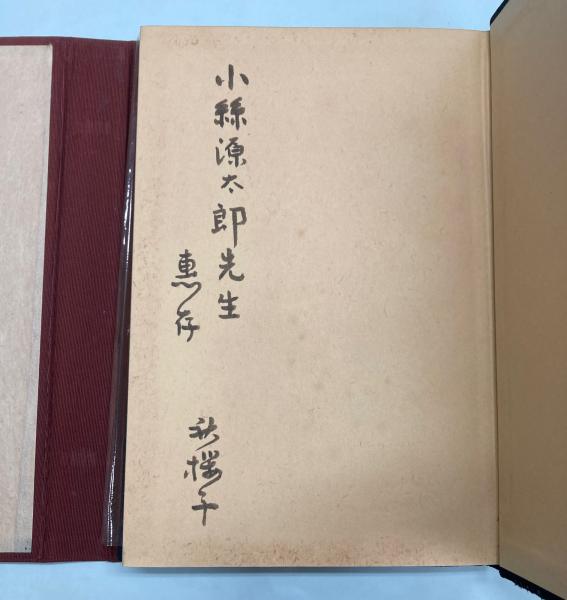 小絲源太郎先生
惠存
秋櫻子